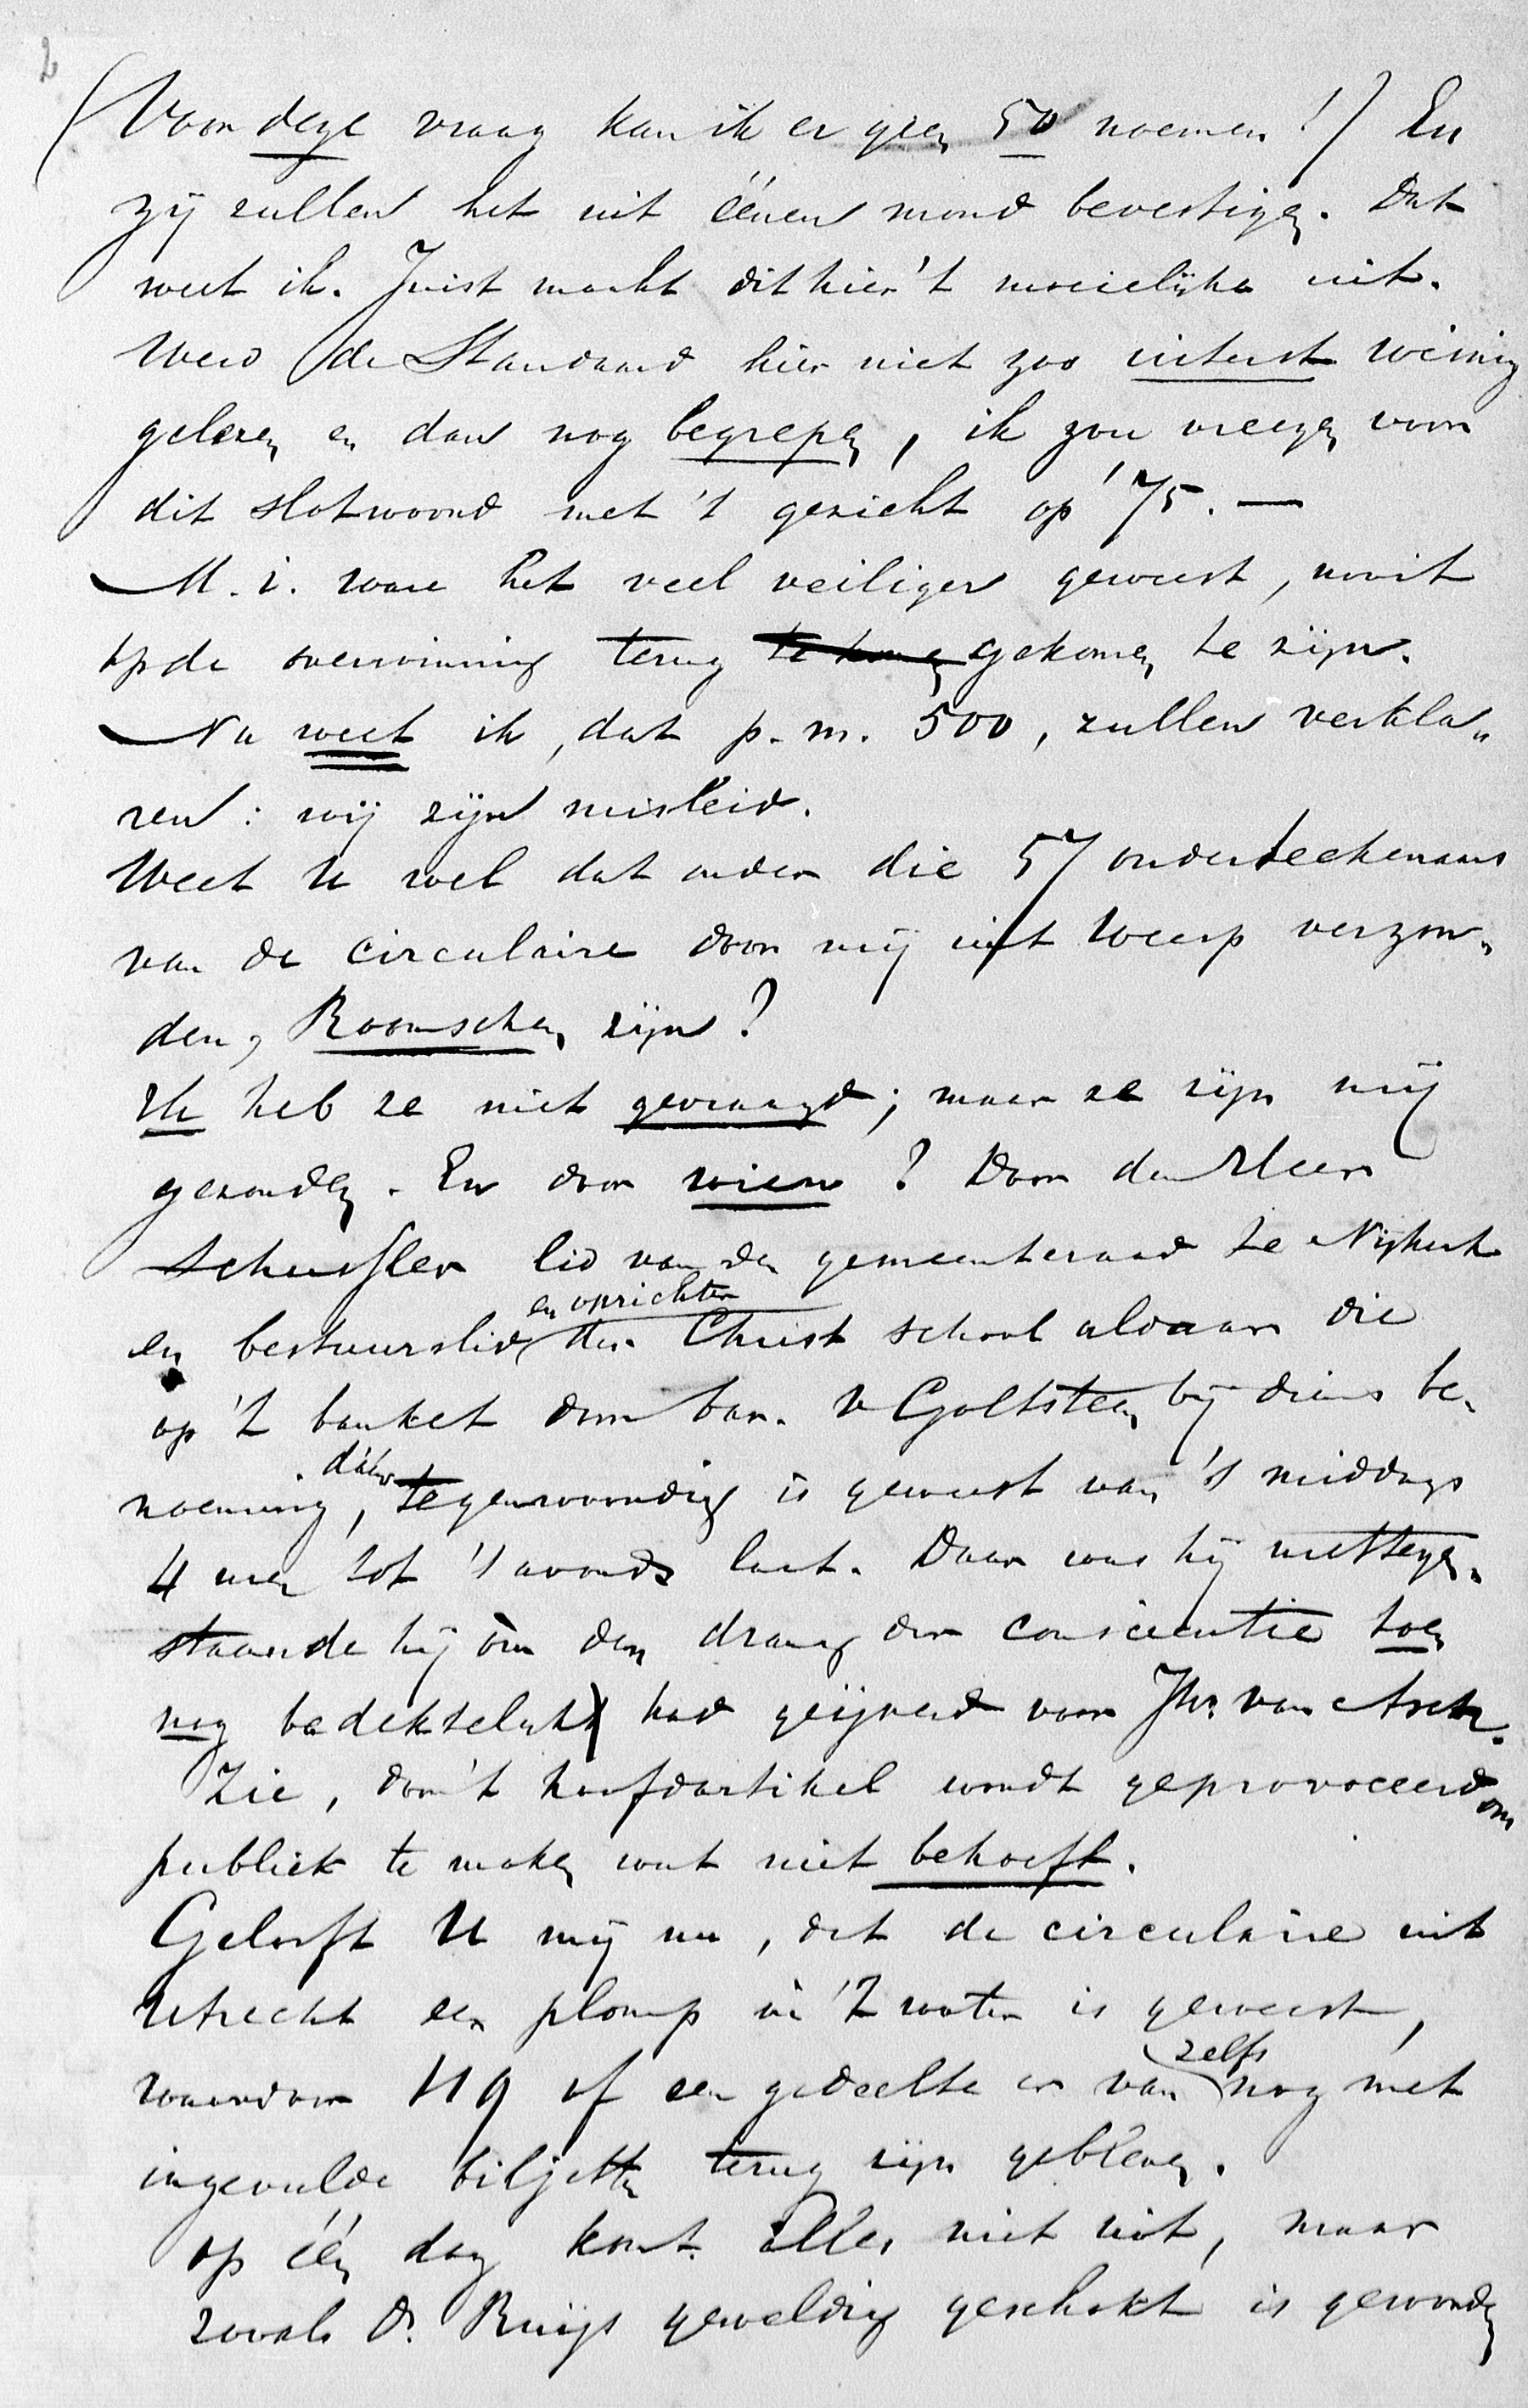 2
(Voor deze vraag kan ik er geen 50 noemen!) En
zij zullen het uit éénen mond bevestigen. Dat
weet ik. Juist maakt dit hier 't moeielijke uit.
Werd de Standaard hier niet zoo uiterst weinig
gelezen en dan nog begrepen, ik zou vreezen voor
dit slotwoord met 't gezicht op '75. —
M. i. ware het veel veiliger geweest, nooit
op de overwinning terug gekomen te zijn.
Nu weet ik, dat p. m. 500, zullen verkla„
ren: wij zijn misleid.
Weet U wel dat onder die 57 onderteekenaars
van de circulaire door mij uit Weesp verzon„
den, Roomschen zijn?
Ik heb ze niet gevraagd; maar ze zijn mij
gezonden. En door wien? Door den Heer
Scheussler lid van den gemeenteraad te Nijkerk
en bestuurslid en oprichter der Christ school aldaar die
op 't banket door bar. v Goltstein bij diens be„
noeming, dáár tegenwoordig is geweest van 's middags
4 uren tot 's avonds laat. Daar was hij niettegen„
staande hij om den drang der consciëntie toen
nog bedektelijk had geijverd voor Jhr. van Asch.
Zie, door 't hoofdartikel wordt geprovoceerd om
publiek te maken wat niet behoeft.
Gelooft U mij nu, dat de circulaire uit
Utrecht een plomp in 't water is geweest,
waardoor 119 of een gedeelte er van zelfs nog met
ingevulde biljetten terug zijn gebleven.
op één dag komt alles niet uit, maar
zooals Ds. Ruijs geweldig geschokt is geworden